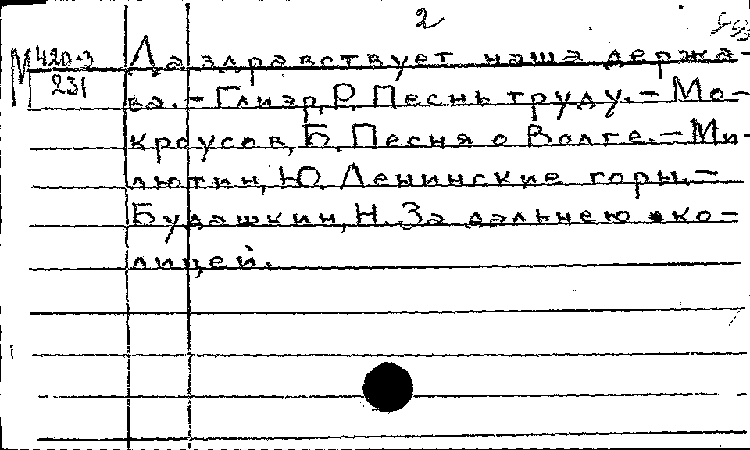 2
М 420-3
231
Да здравствует наша держа-
ва. - Глиэр, Р. Песнь труду. - Мо-
кроусов, Б. Песня о Волге. - Ми-
лютин, Ю. Ленинские горы. -
Будашкин, Н. За дальнею око-
лицей.